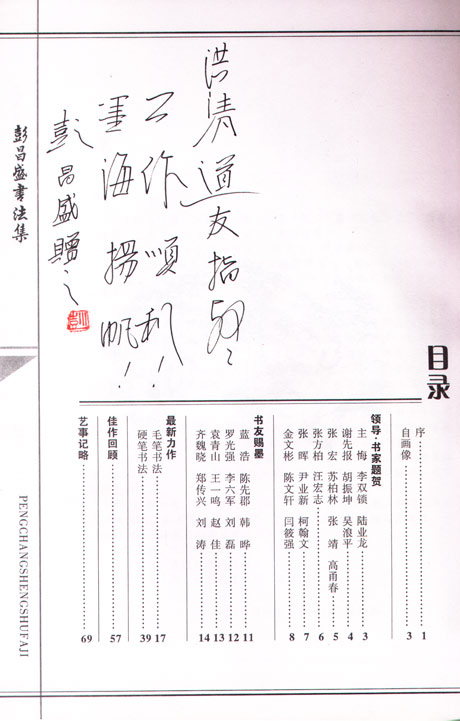 洪清道友指
工作順利!!
墨海揚帆!!
彭昌盛贈
目录
序 1
自画像 3
领导·书家题贺
主 悔 李双锁 陆业龙 3
谢先报 胡振坤 吴浪平 4
张 宏 苏柏林 张 靖 高甬春 5
张方柏 汪宏志 6
张 晖 尹业新 柯翰文 7
金文彬 陈文轩 闫筱强 8
书友赐墨
蓝 浩 陈先郡 韩 晔 11
罗光强 李六军 刘 磊 12
袁青山 王一鸣 赵 佳 13
齐魏晓 郑传兴 刘 涛 14
最新力作
毛笔书法 17
硬笔书法 39
佳作回顾 57
艺事记略 69
彭昌盛書法集
PENGCHANGSHENGSHUFAJI